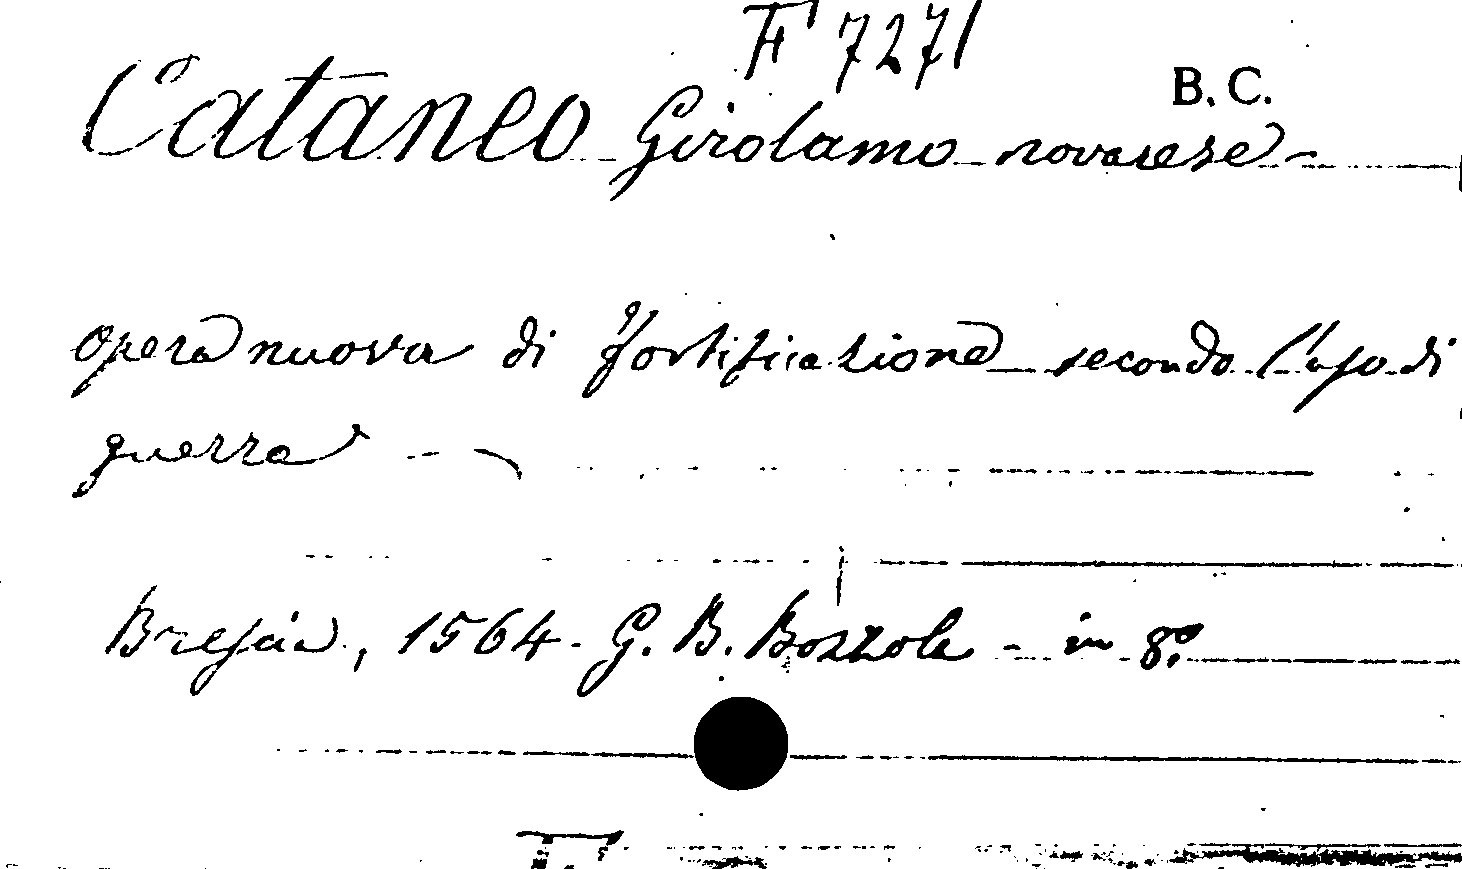 F 7271
B. C.
Cataneo Girolamo novarese -
opera nuova di fortificazione secondo l'uso di
guerra - -
Brescia, 1564 - G. B. Bozzola - in 8º